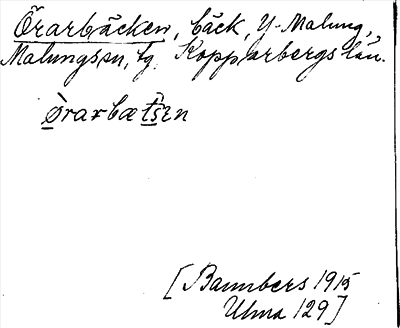 Örarbäcken, bäck, Y. Malung,
Malungs sn, tg. Kopparbergs län.
ø̀rarbætsɛn
[Bannbers 1915
Ulma 129]